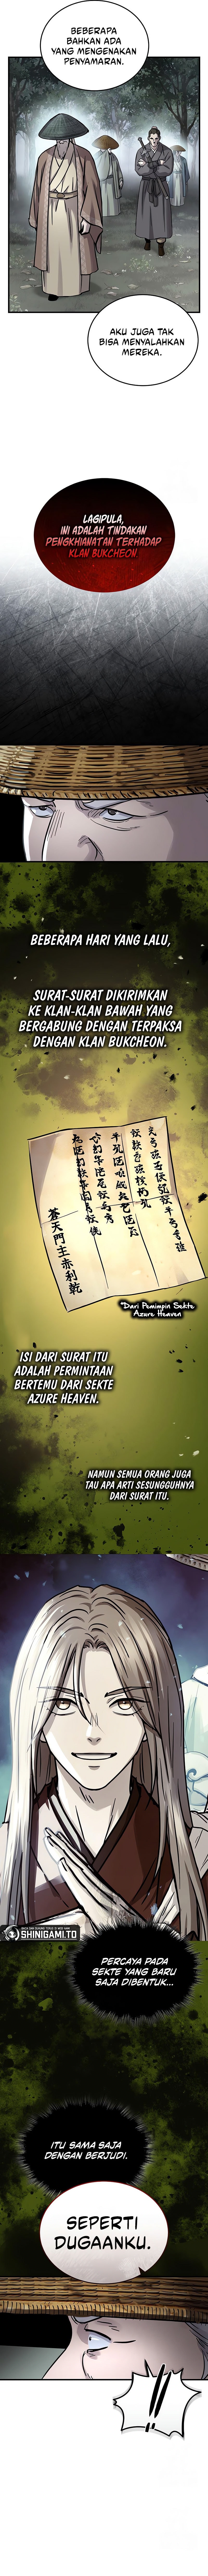 BEBERAPA
BAHKAN ADA
YANG MENGENAKAN
PENYAMARAN.
AKU JUGA TAK
BISA MENYALAHKAN
MEREKA.
LAGIPULA,
INI ADALAH TINDAKAN
PENGKHIANATAN TERHADAP
KLAN BUKCHEON.
BEBERAPA HARI YANG LALU,
SURAT-SURAT DIKIRIMKAN
KE KLAN-KLAN BAWAH YANG
BERGABUNG DENGAN TERPAKSA
DENGAN KLAN BUKCHEON.
蒼天門主赤利乾
*Dari Pemimpin Sekte
Azure Heaven
ISI DARI SURAT ITU
ADALAH PERMINTAAN
BERTEMU DARI SEKTE
AZURE HEAVEN.
NAMUN SEMUA ORANG JUGA
TAU APA ARTI SESUNGGUHNYA
DARI SURAT ITU.
SHINIGAMI.TO
PERCAYA PADA
SEKTE YANG BARU
SAJA DIBENTUK...
ITU SAMA SAJA
DENGAN BERJUDI.
SEPERTI
DUGAANKU.
!!